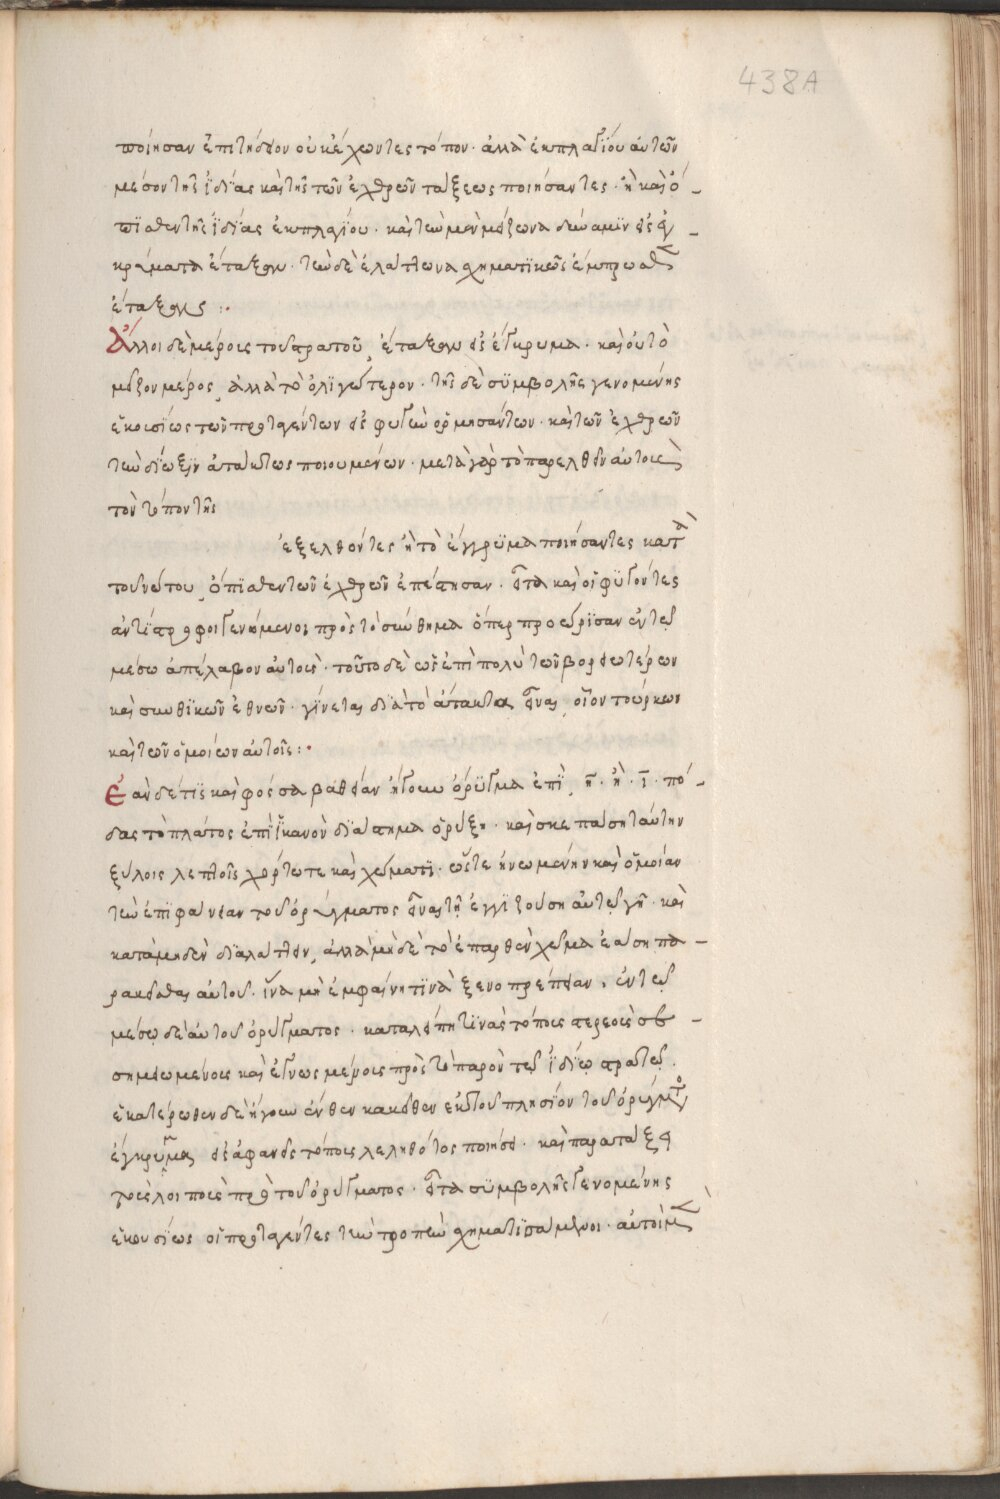 438A
ποίησαν ἐπιτήδειον οὐκ ἔχωντες τόπον· ἀλλὰ ἐκπλαγίου αὐτῶν
μέσον τῆς ἰδίας καὶ τῆς τῶν ἐχθρῶν τάξεως ποιήσαντες· ἢ καὶ ὄ-
πϊσθεν τῆς ἰδίας ἐκπλαγίου· καὶ τὴν μὲν μείζωνα δύναμϊν εἰς ἐγ-
κρύματα ἔταξαν· τὴν δὲ ἐλάττωνα σχηματϊκῶς ἔμπρωσθεν
ἔταξαν :·
Ἄλλοι δὲ μέροις τοῦ στρατοῦ, ἔταξαν εἰς ἔγκρυμα· καὶ οὐ τὸ
μεῖζον μέρος, ἀλλὰ τὸ ὀλϊγώτερον· τῆς δὲ σϋμβολῆς γενομένης
ἑκοισίως τῶν προταγέντων εἰς φυγὴν ὁρμησάντων· καὶ τῶν ἐχθρῶν
τὴν δίωξϊν ἀτάκτως ποιουμένων· μετὰ γὰρ τὸ παρελθεῖν αὐτοὺς
τὸν τόπον τῆς
ἐξελθόντες ἢ τὸ ἔγγρϋμα ποιήσαντες κατὰ
τοῦ νώτου, ὄπϊσθεν τῶν ἐχθρῶν ἐπέστησαν· εἶτα καὶ οἱ φϋγόντες
ἀντίστροφοι γενώμενοι πρὸς τὸ σύνθημα ὅπερ προώρϊσαν ἐν τῷ
μέσω ἀπέλαβον αὐτοὺς· τοῦτο δὲ ὡς ἐπὶ πολὺ τῶν βορειωτέρων
καὶ σκυθϊκῶν ἐθνῶν· γίνεται δϊὰ τὸ ἄτακτα εἶναι, οἷον τούρκων
καὶ τῶν ὁμοίων αὐτοῖς :·
Ἐὰν δέ τϊς καὶ φόσσα βαθεῖαν ἤγουν ὄρϋγμα ἐπὶ, η̅· ἢ· ι̅· πό-
δας τὸ πλάτος ἐπὶ ἱκανὸν δϊάστημα ὀρύξη· καὶ σκεπάση ταύτην
ξύλοις λεπτοῖς χόρτω τε καὶ χώματϊ· ὥστε ἡνωμένην καὶ ὁμοίαν
τὴν ἐπϊφάνειαν τοῦ ὀρύγματος εἶναι τῇ ἐγγϊζούση αὐτῷ γῇ· καὶ
κατὰ μηδὲν δϊαλάττειν, ἀλλὰ μηδὲ τὸ ἐπαρθὲν χῶμα ἐάση πα-
ρακεῖσθαι αὐτοῦ· ἵνα μὴ ἐμφαίνη τϊνὰ ξενοπρέπειαν· ἐν τῷ
μέσῳ δὲ αὐτοῦ ὀρύγματος· καταλείπη τϊνὰς τόπους στερεοὺς σε-
σημειωμένους καὶ ἐγνωσμένους πρὸς τὸ παρὸν τῷ ἰδίῳ στρατῷ·
ἑκατέρωθεν δὲ ἤγουν ἔνθεν κακεῖθεν ἐκ τοῦ πλησίον τοῦ ὀρύγματος
ἐγκρύμματα εἰς ἀφανεῖς τόπους λεληθότος ποιήσει· καὶ παρατάξει
τοὺς λοιποὺς πρὸ τοῦ ὀρύγματος· εἶτα σϋμβολῆς γενομένης
ἑκουσίως οἱ προταγέντες τὴν τροπὴν σχηματϊσάμενοι· αὐτοὶ μὲν